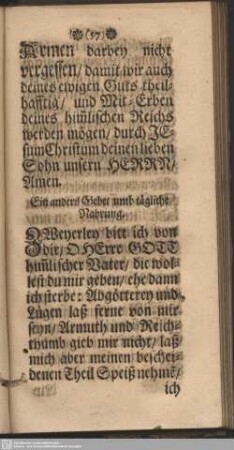 (57)
Armen darbey nicht
vergessen/ damit wir auch
deines ewigen Guts theil-
hafftig/ und Mit-Erben
deines him̃lischen Reichs
werden mögen/ durch JE-
sum Christum deinen lieben
Sohn unsern HERRN/
Amen.
Ein anders Gebet umb tägliche
Nahrung.
Zweyerley bitt ich von
dir/ O HErre GOTT
him̃lischer Vater/ die wol-
lest du mir geben/ ehe dann
ich sterbe: Abgötterey und
Lügen laß ferne von mir
seyn/ Armuth und Reich-
thumb gieb mir nicht/ laß
mich aber meinen beschei-
denen Theil Speiß nehmẽ/
ich